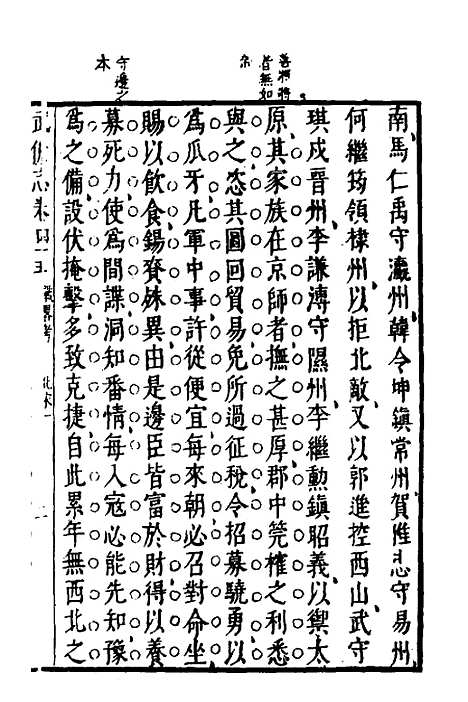 善將將
者無如
守邊之
本
南馬仁禹守瀛州韓令坤鎮常州賀惟忠守易州
何繼筠領棣州以拒北敵又以郭進控西山武守
琪戍晉州李謙溥守隰州李繼勳鎮昭義以禦太
原其家族在京師者撫之甚厚郡中筦榷之利悉
與之恣其圖回貿易免所過征稅令招募驍勇以
為瓜牙凡軍中事許從便宜每來朝必召對命坐
賜以飲食錫賚殊異由是邊臣皆富於財得以養
募死力使為間諜洞知番情每入寇必能先知豫
為之備設伏掩擊多致克捷自此累年無西北之
武備志卷四十五 戰畧考 北宋一 二